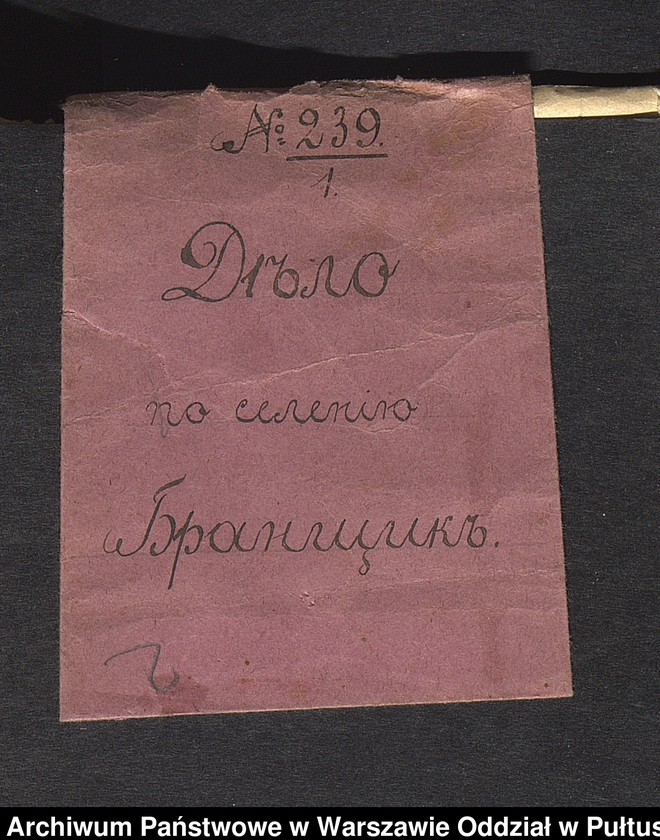 № 239.
1.
Дѣло
по селенію
Бранщикъ.
Archiwum Państwowe w Warszawie Oddział w Pułtus